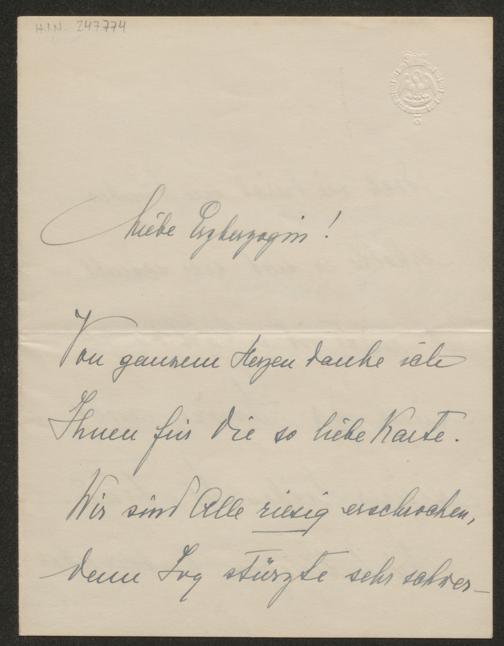 H.I.N. 247.774
Liebe Erzherzogin!
Von ganzem Herzen danke ich
Ihnen für die so liebe Karte.
Wir sind Alle riesig erschrocken,
denn Ivy stürzte sehr schwer–